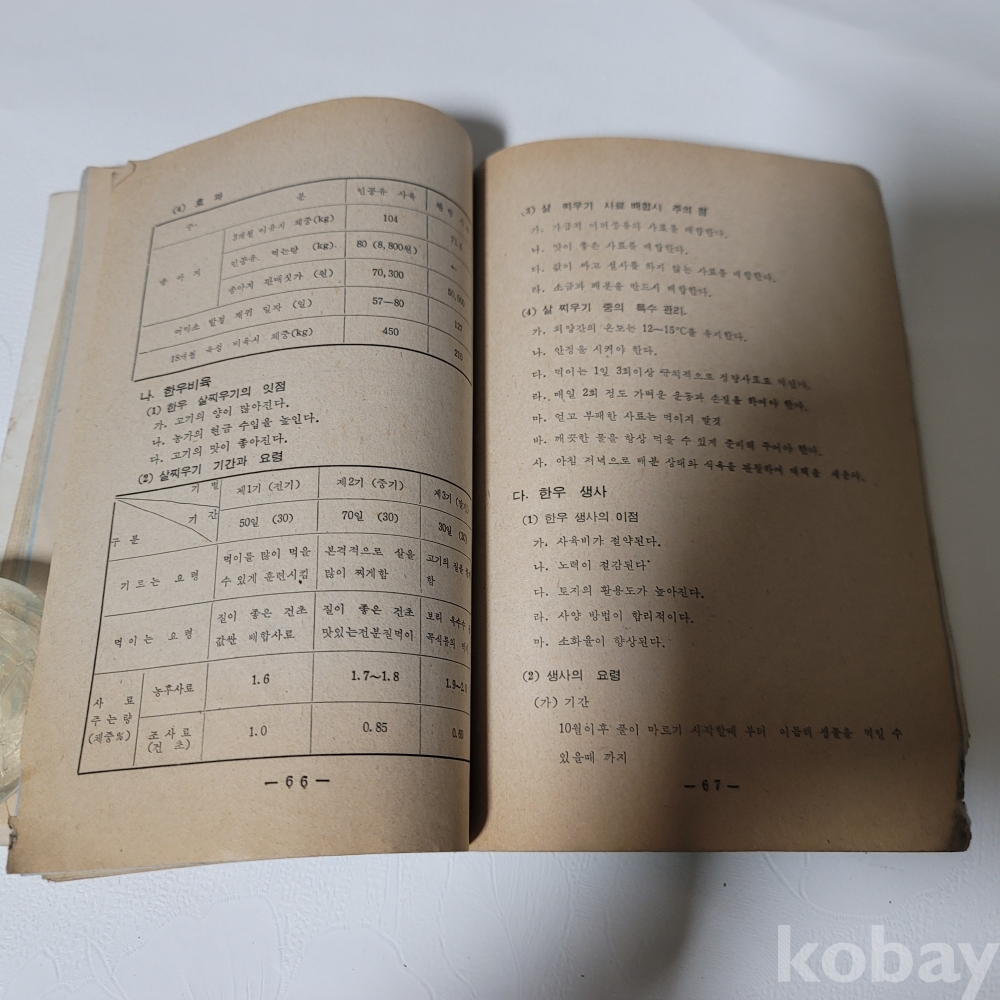 (4) 효 과
구 분 인공유 사육
송 아 지 3개월 이유시 체중(kg) 104
인공유 먹는량 (kg) 80 (8,800원)
송아지 판매싯가 (원) 70,300 50,000
어미소 발정 재귀 일자 (일) 57—80 127
18개월 육성 비육시 체중(kg) 450 210
나. 한우비육
(1) 한우 살찌우기의 잇점
가. 고기의 양이 많아진다.
나. 농가의 현금 수입을 높인다.
다. 고기의 맛이 좋아진다.
(2) 살찌우기 기간과 요령
기 별 제1기 (전기) 제2기 (중기) 제3기
구 분 기 간 50일 (30) 70일 (30) 30일 (30)
기 르 는 요 령 먹이를 많이 먹을 본격적으로 살을 고기의 질을
수 있게 훈련시킴 많이 찌게합 함
먹 이 는 요 령 질이 좋은 건초 질이 좋은 건초 보리 옥수수
값싼 배합사료 맛있는전분질먹이 곡식들의
사 료 주 는 량 (체중%) 농후사료 1.6 1.7~1.8
조 사 료 (건 초) 1.0 0.85
— 6 6 —
(3) 살 찌우기 사료 배합시 주의 점
가. 가급적 여러종류의 사료를 배합한다.
나. 맛이 좋은 사료를 배합한다.
다. 값이 싸고 설사를 하지 않는 사료를 배합한다.
라. 소금과 배분을 반드시 배합한다.
(4) 살 찌우기 중의 특수 관리.
가. 외양간의 온도는 12~15℃를 유지한다.
나. 안정을 시켜야 한다.
다. 먹이는 1일 3회이상 규칙적으로 정량사료로 먹인다.
라. 매일 2회 정도 가벼운 운동과 손질을 하여야 한다.
마. 얻고 부패한 사료는 먹이지 말것
바. 깨끗한 물을 항상 먹을 수 있게 준비해 주어야 한다.
사. 아침 저녁으로 배분 상태와 식욕을 관찰하여 대책을 세운다.
다. 한우 생사
(1) 한우 생사의 이점
가. 사육비가 절약된다.
나. 노력이 절감된다.
다. 토지의 활용도가 높아진다.
라. 사양 방법이 합리적이다.
마. 소화율이 향상된다.
(2) 생사의 요령
(가) 기간
10월이후 풀이 마르기 시작할때 부터 이듬해 생풀을 먹일 수
있을때 까지
— 6 7 —
kobay